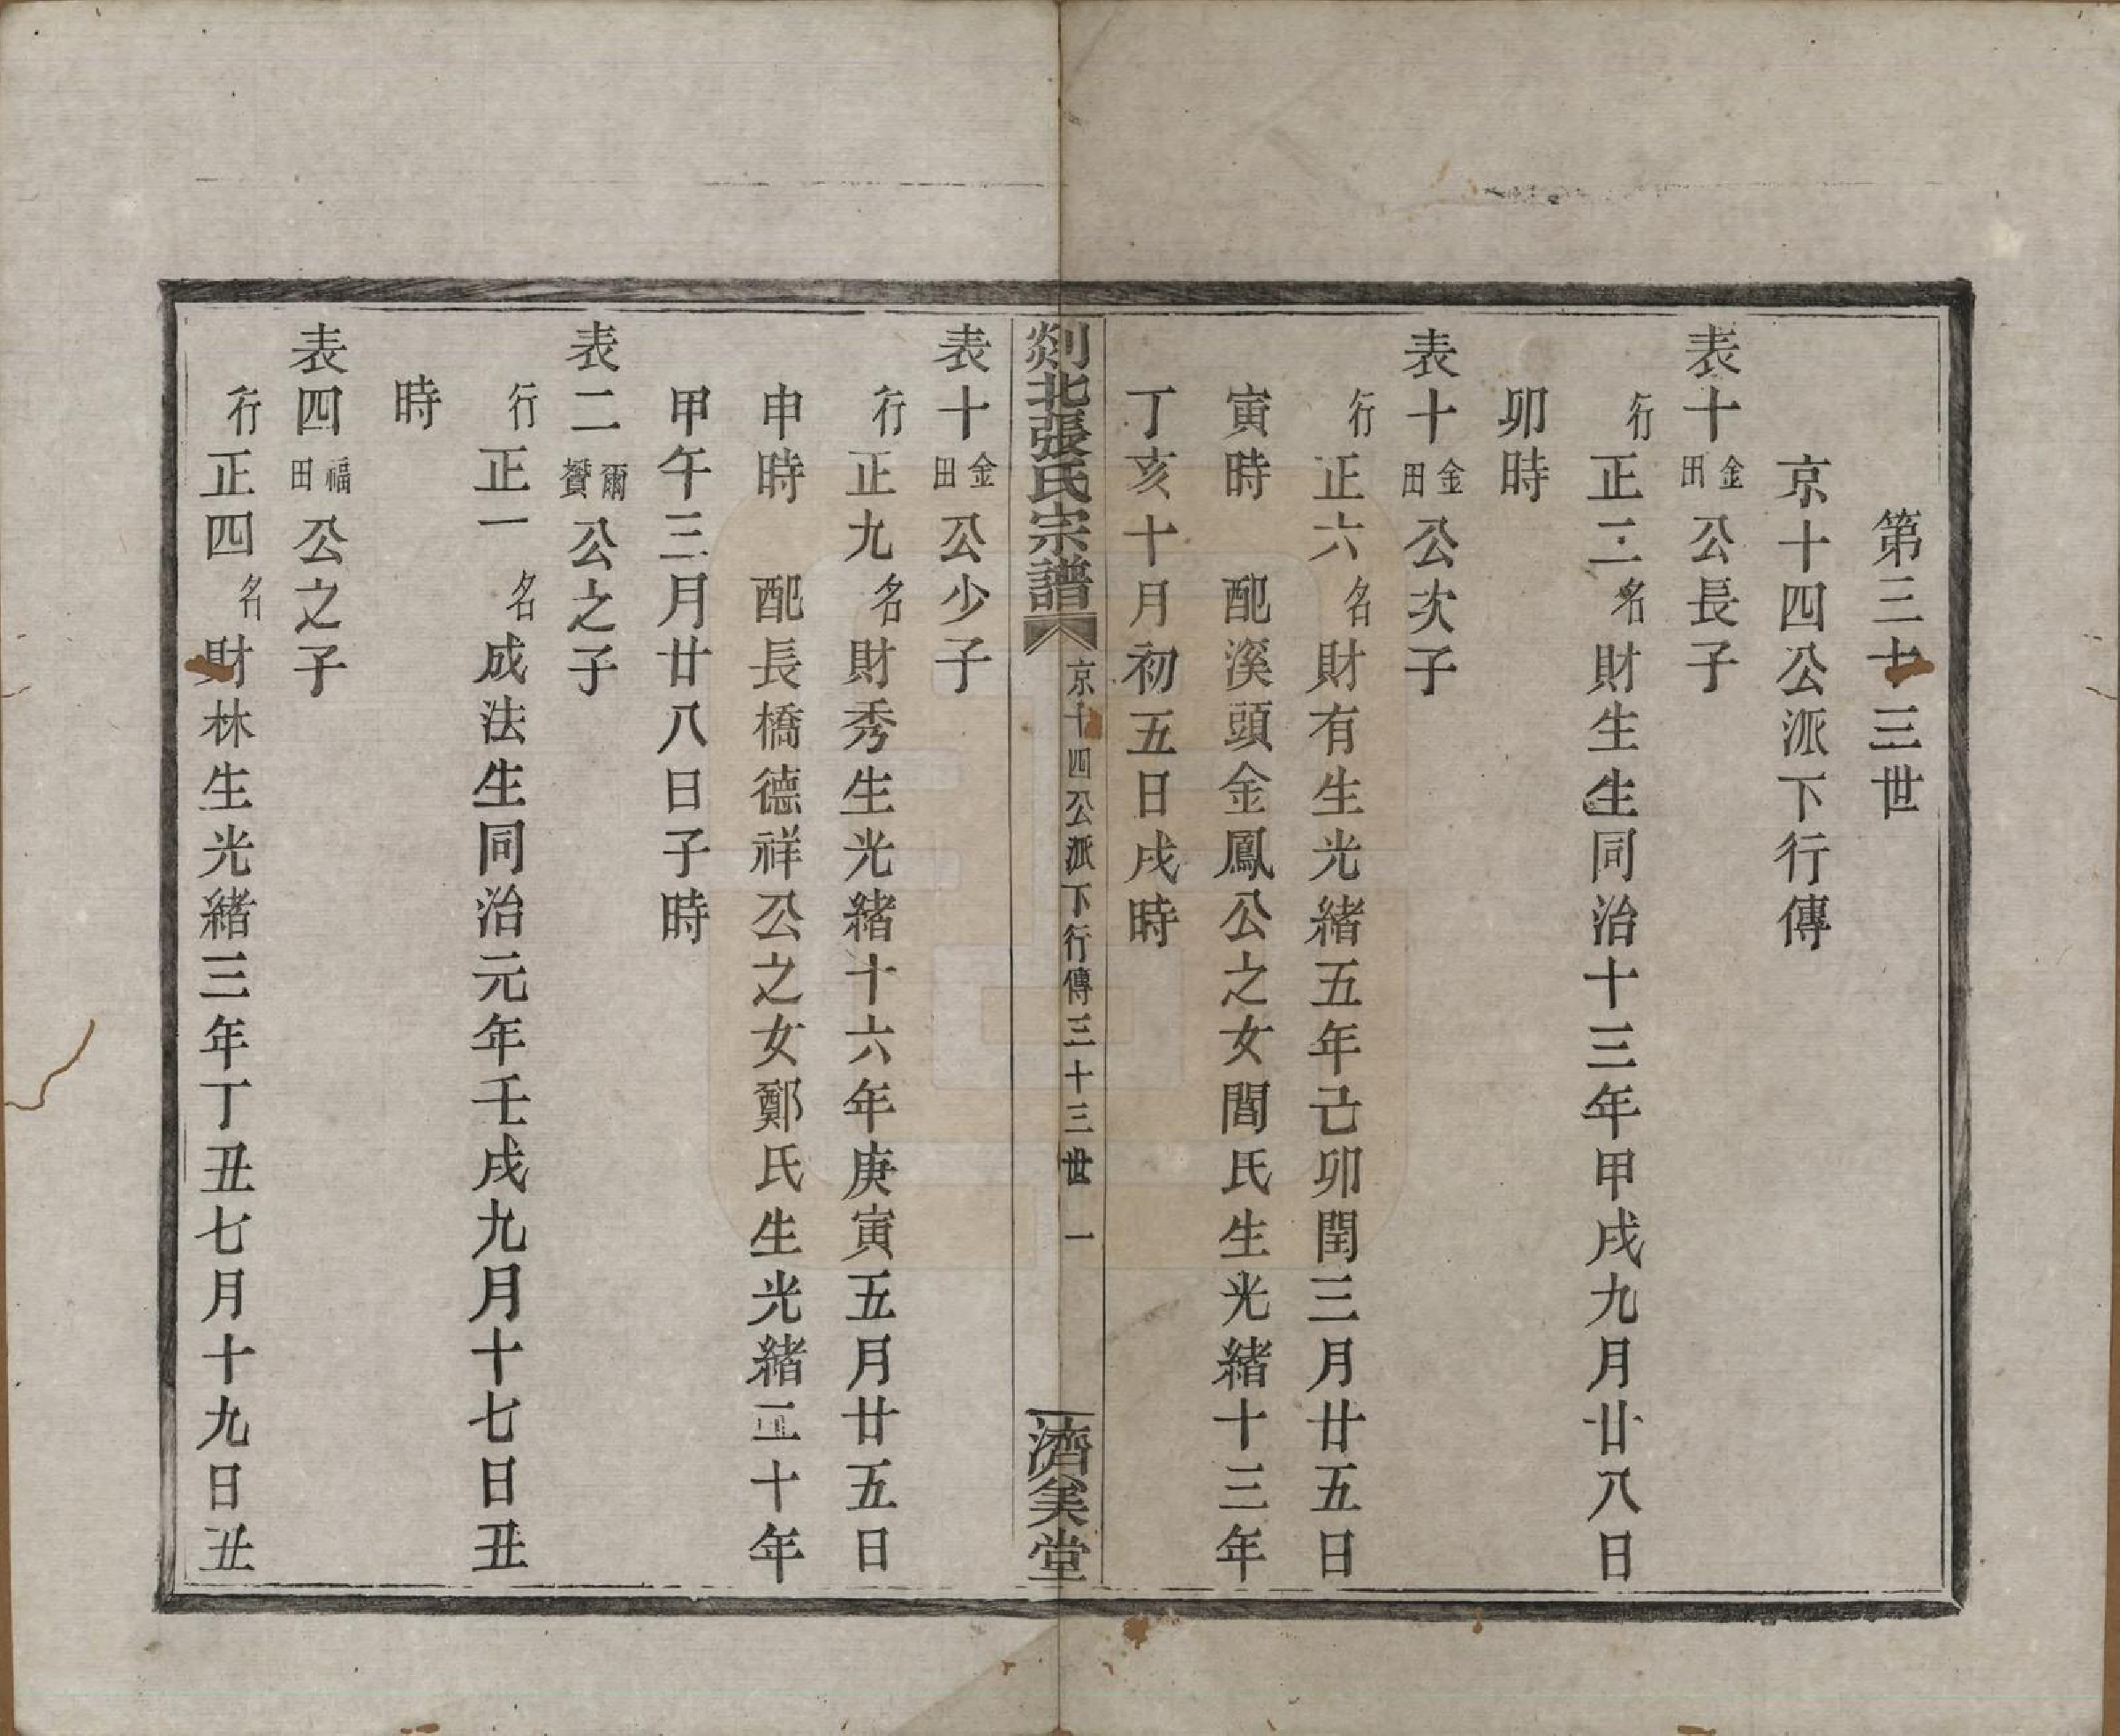 第三十三世
京十四公派下行傳
表十金田公長子
行正二名財生生同治十三年甲戌九月廿八日
卯時
表十金田公次子
行正六名財有生光緒五年己卯閏三月廿五日
寅時　配溪頭金鳳公之女閻氏生光緒十三年
丁亥十月初五日戌時
剡北張氏宗譜　京十四公派下行傳三十三世　一　濟美堂
表十金田公少子
行正九名財秀生光緒十六年庚寅五月廿五日
申時　配長橋德祥公之女鄭氏生光緒二十年
甲午三月廿八日子時
表二爾贊公之子
行正一名成法生同治元年壬戌九月十七日丑
時
表四福田公之子
行正四名財林生光緒三年丁丑七月十九日丑